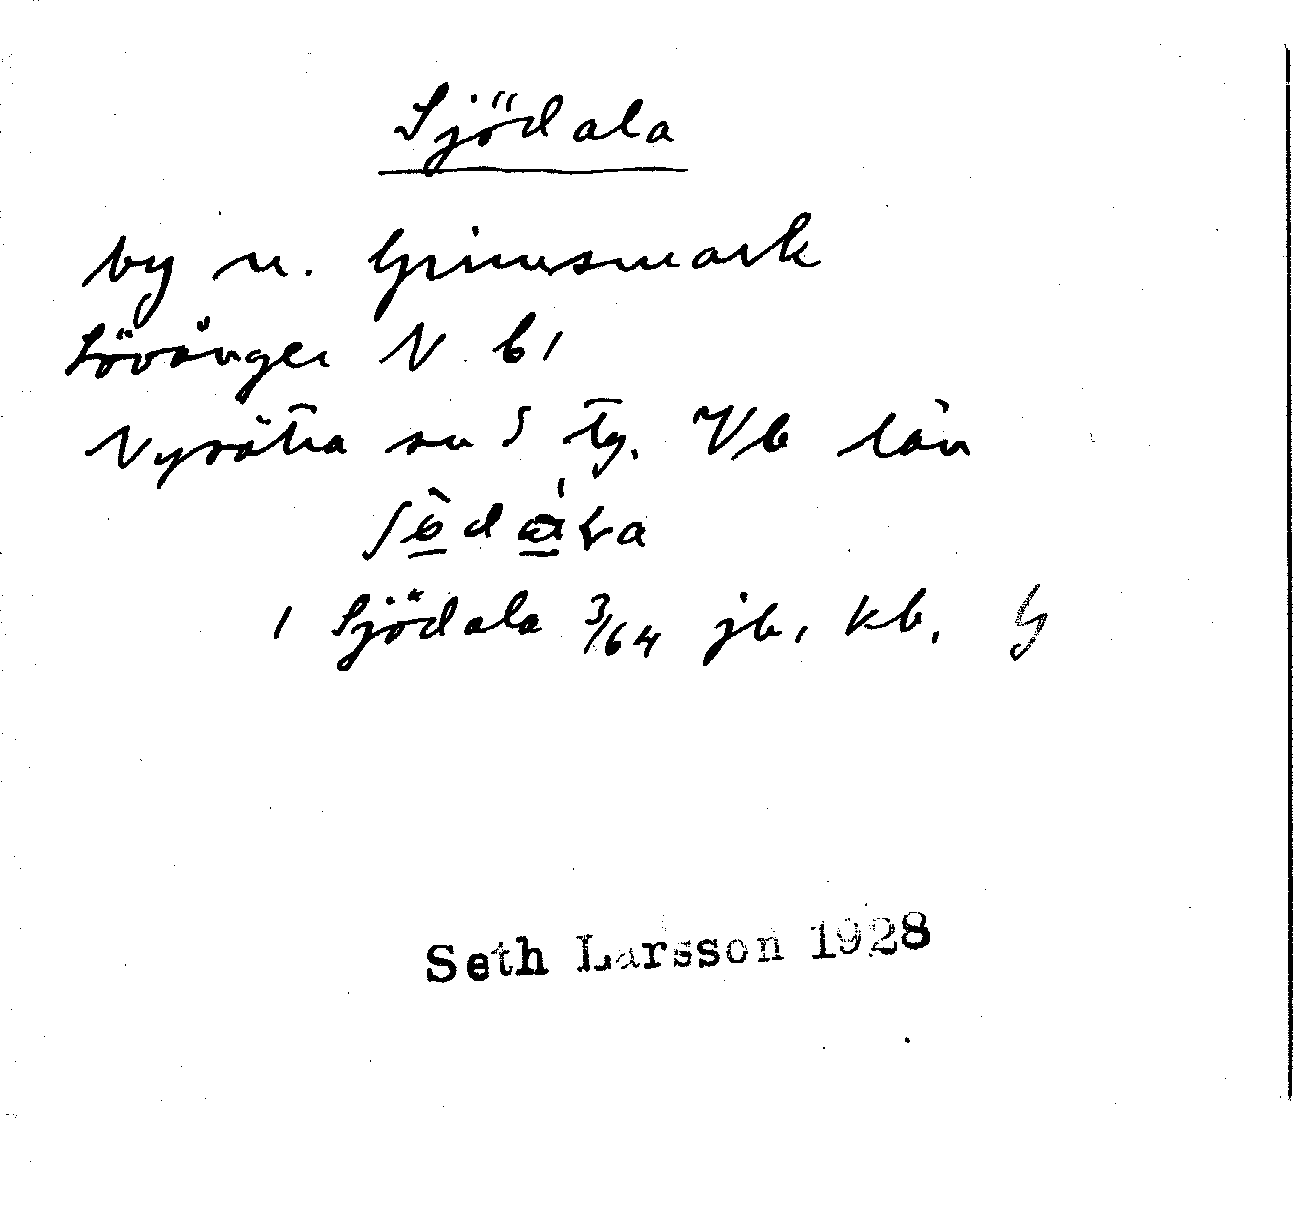 Sjödala
by n. Grimsmark
Lövånger N bl
Nysätra sn S Tg. Vb län
1 Sjödala 3/64 jb, kb,
Seth Larsson 1928